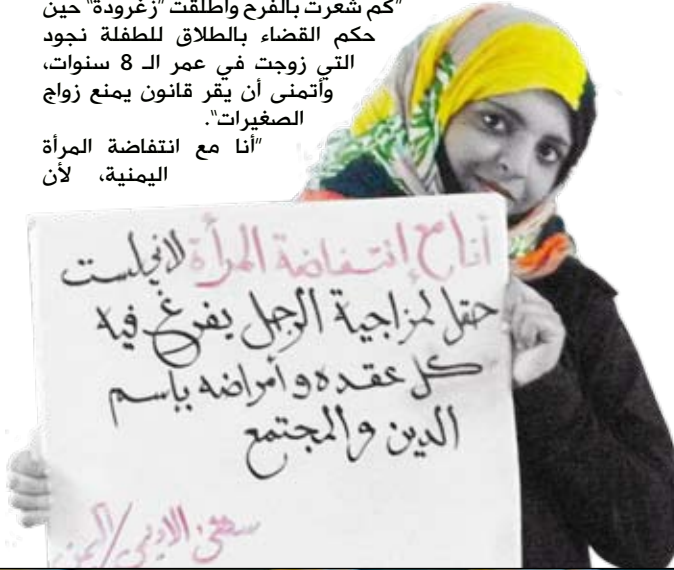 "كم شعرت بالفرح واطلقت "زغرودة" حين
حكم القضاء بالطلاق للطفلة نجود
التي زوجت في عمر الـ 8 سنوات،
وأتمنى أن يقر قانون يمنع زواج
الصغيرات".
"أنا مع انتفاضة المرأة
اليمنية، لأن
أنا مع إنتفاضة المرأة لاني لست
حقل لمزاجية الرجل يفرغ فيه
كل عقده وأمراضه بإسم
الدين والمجتمع
/اليمن